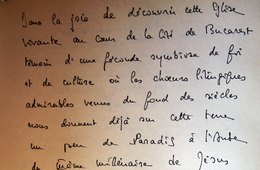 Dans la joie de découvrir cette Eglise
vivante au cœur de la Cité de Bucarest
témoin d'une féconde symbiose de foi
et de culture où les chœurs liturgiques
admirables venus du fond des siècles
nous donnent déjà sur cette terre
un peu de Paradis à l'Aube
du millénaire de Jésus